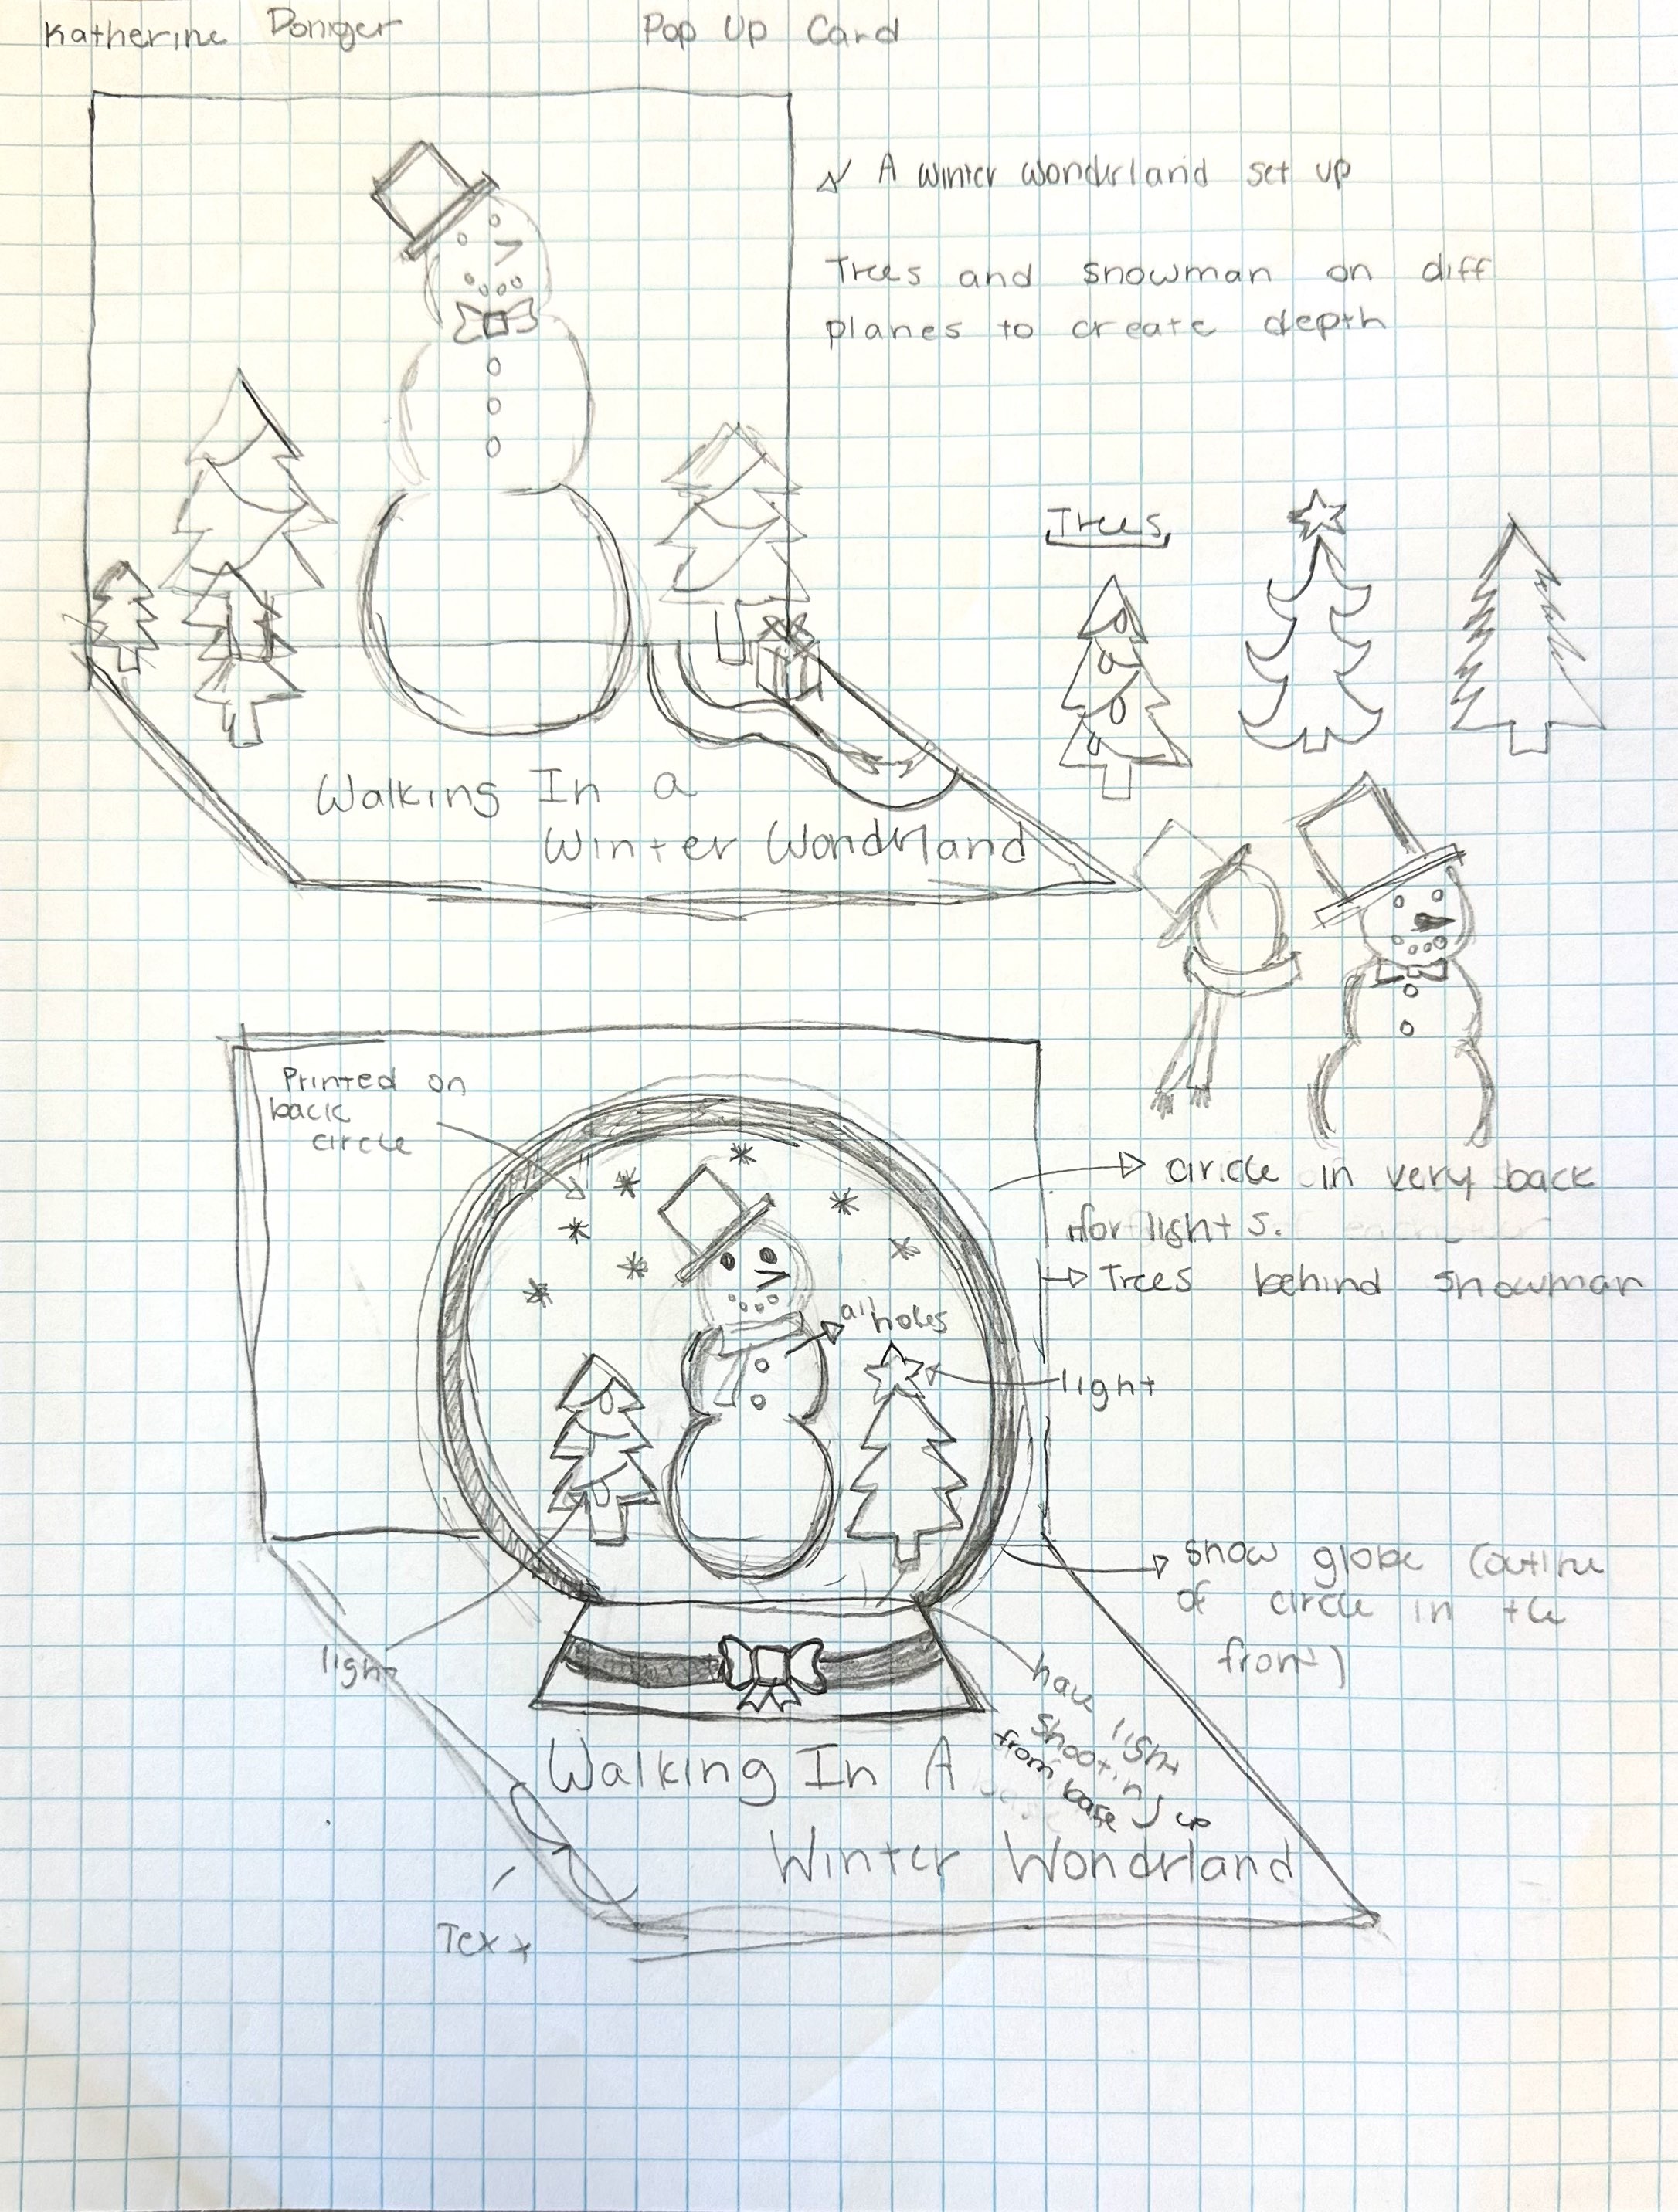 Katherine Doniger
Pop Up Card
A Winter Wonderland set up
Trees and snowman on diff
planes to create depth
Trees
Walking In a
Winter Wondrland
Printed on
back
circle
circle in very back
for lights.
Trees behind snowman
all holes
light
snow globe (outline
of circle in the
front)
light
have light
shooting up
from base
Walking In A
Winter Wondrland
Text